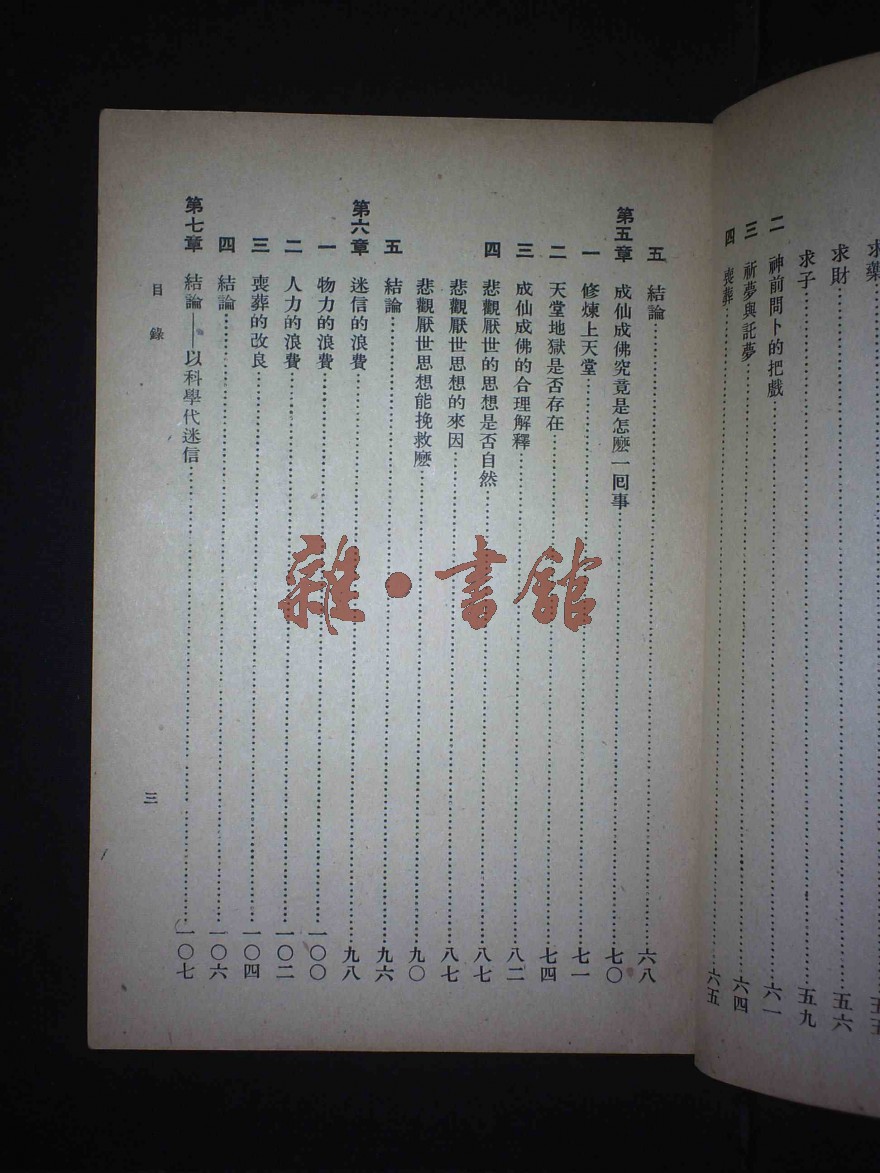 求藥……五五
求財……五六
求子……五九
二 神前問卜的把戲……六一
三 祈夢與託夢……六四
四 喪葬……六五
五 結論……六八
第五章 成仙成佛究竟是怎麽一囘事……七〇
一 修煉上天堂……七一
二 天堂地獄是否存在……七四
三 成仙成佛的合理解釋……八二
四 悲觀厭世的思想是否自然……八七
悲觀厭世思想的來因……八七
悲觀厭世思想能挽救麽……九〇
五 結論……九六
第六章 迷信的浪費……九八
一 物力的浪費……一〇〇
二 人力的浪費……一〇二
三 喪葬的改良……一〇四
四 結論……一〇六
第七章 結論——以科學代迷信……一〇七
目錄
三
雜·書館